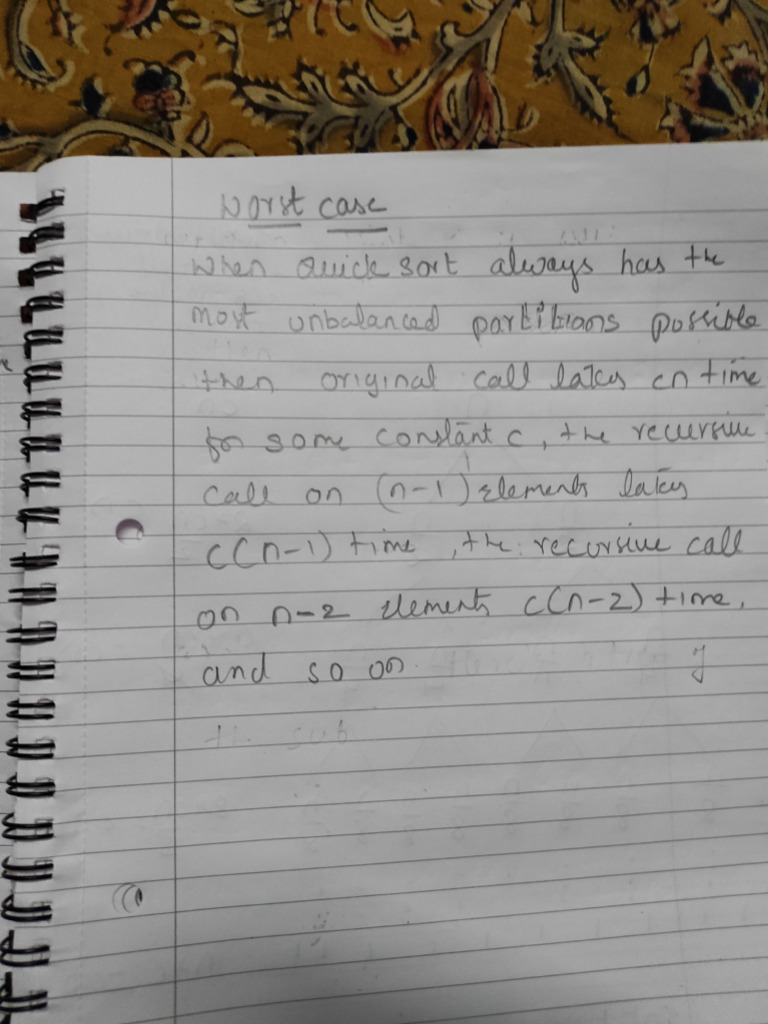 Worst case
When quick sort always has the
most unbalanced partitions possible
then original call takes cn time
for some constant c, the recursive
call on (n-1) elements takes
c(n-1) time, the recursive call
on n-2 elements c(n-2) time,
and so on.
th sub